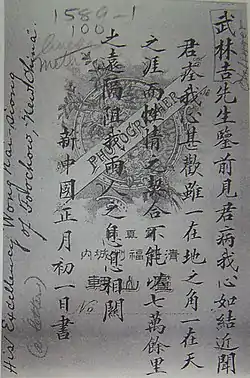 1589-1
100
武林吉先生鑒前見君病我心如結近聞
君痊我心甚歡雖一在地之角一在天
之涯而性情之契合不能以七萬餘里
之遠隔阻我兩人之息息相關
新中國正月初一日書
PHOTOGRAPHER
內城利福
No
His Excellency Wong Nai-siong
of Foochow, New China.
(a letter)